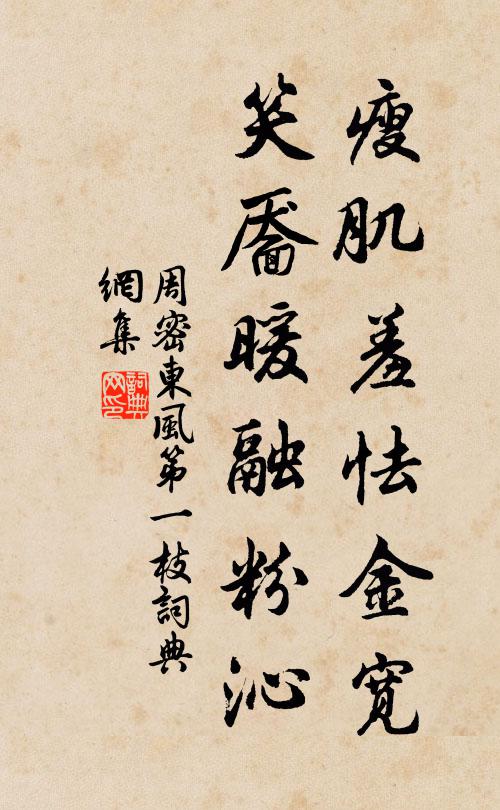 瘦肌羞怯金寬
笑靨暖融粉沁
周密東風第一枝詞典
網集
詞典
网印